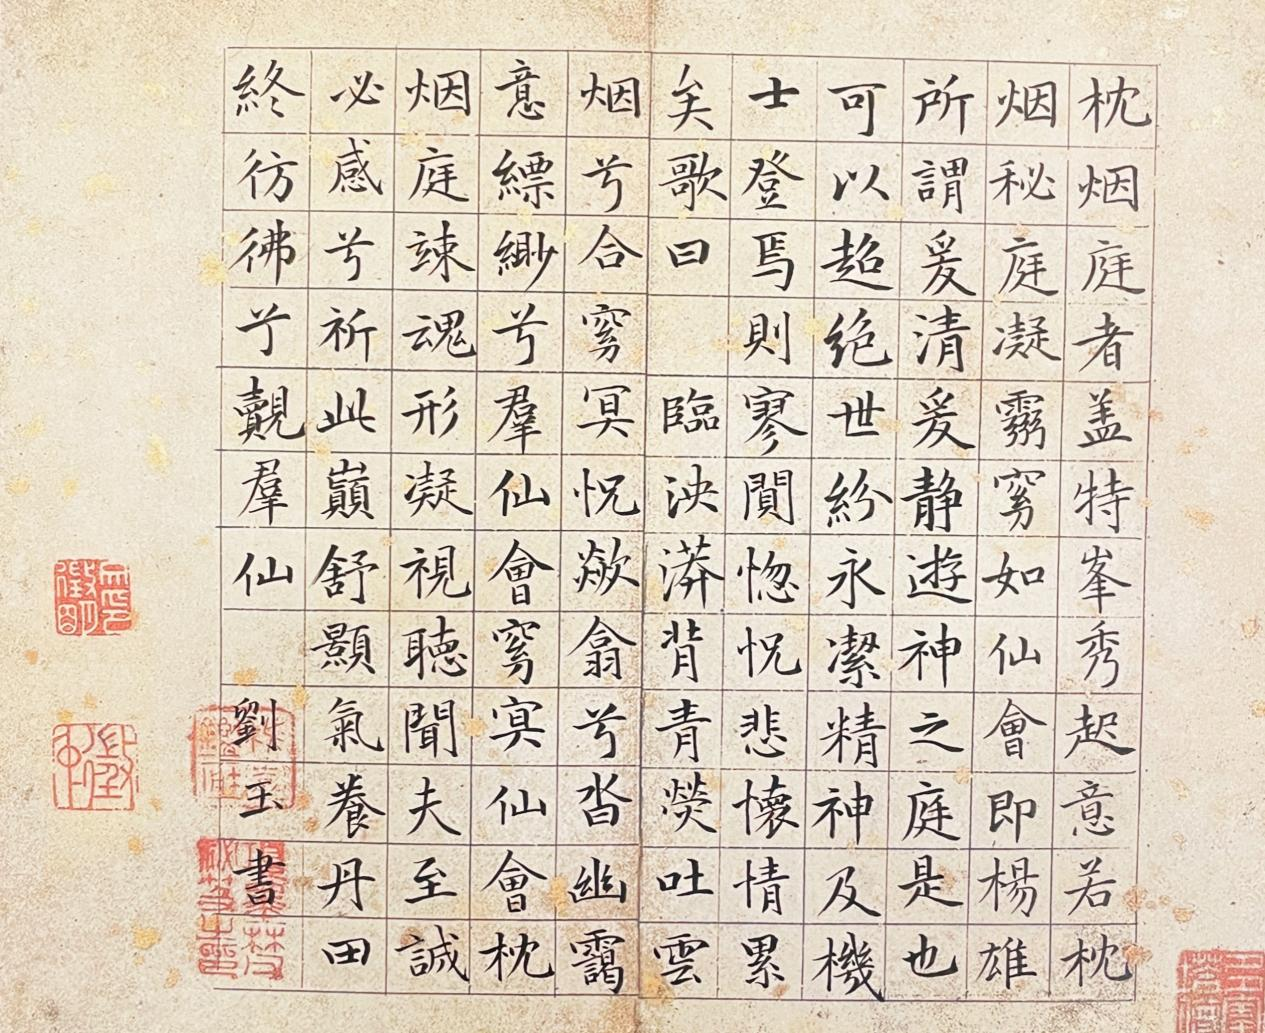 枕烟庭者盖特峯秀起意若枕
烟秘庭凝霧窅如仙會即楊雄
所謂爰清爰静遊神之庭是也
可以超絶世紛永潔精神及機
士登焉則寥闃惚怳悲懷情累
矣歌曰 臨泱漭背青熒吐雲
烟兮合窅冥怳歘翕兮沓幽靄
意縹緲兮羣仙會窅冥仙會枕
烟庭竦魂形凝視聽聞夫至誠
必感兮祈此巔舒顥氣養丹田
終彷彿兮覿羣仙 劉玉書